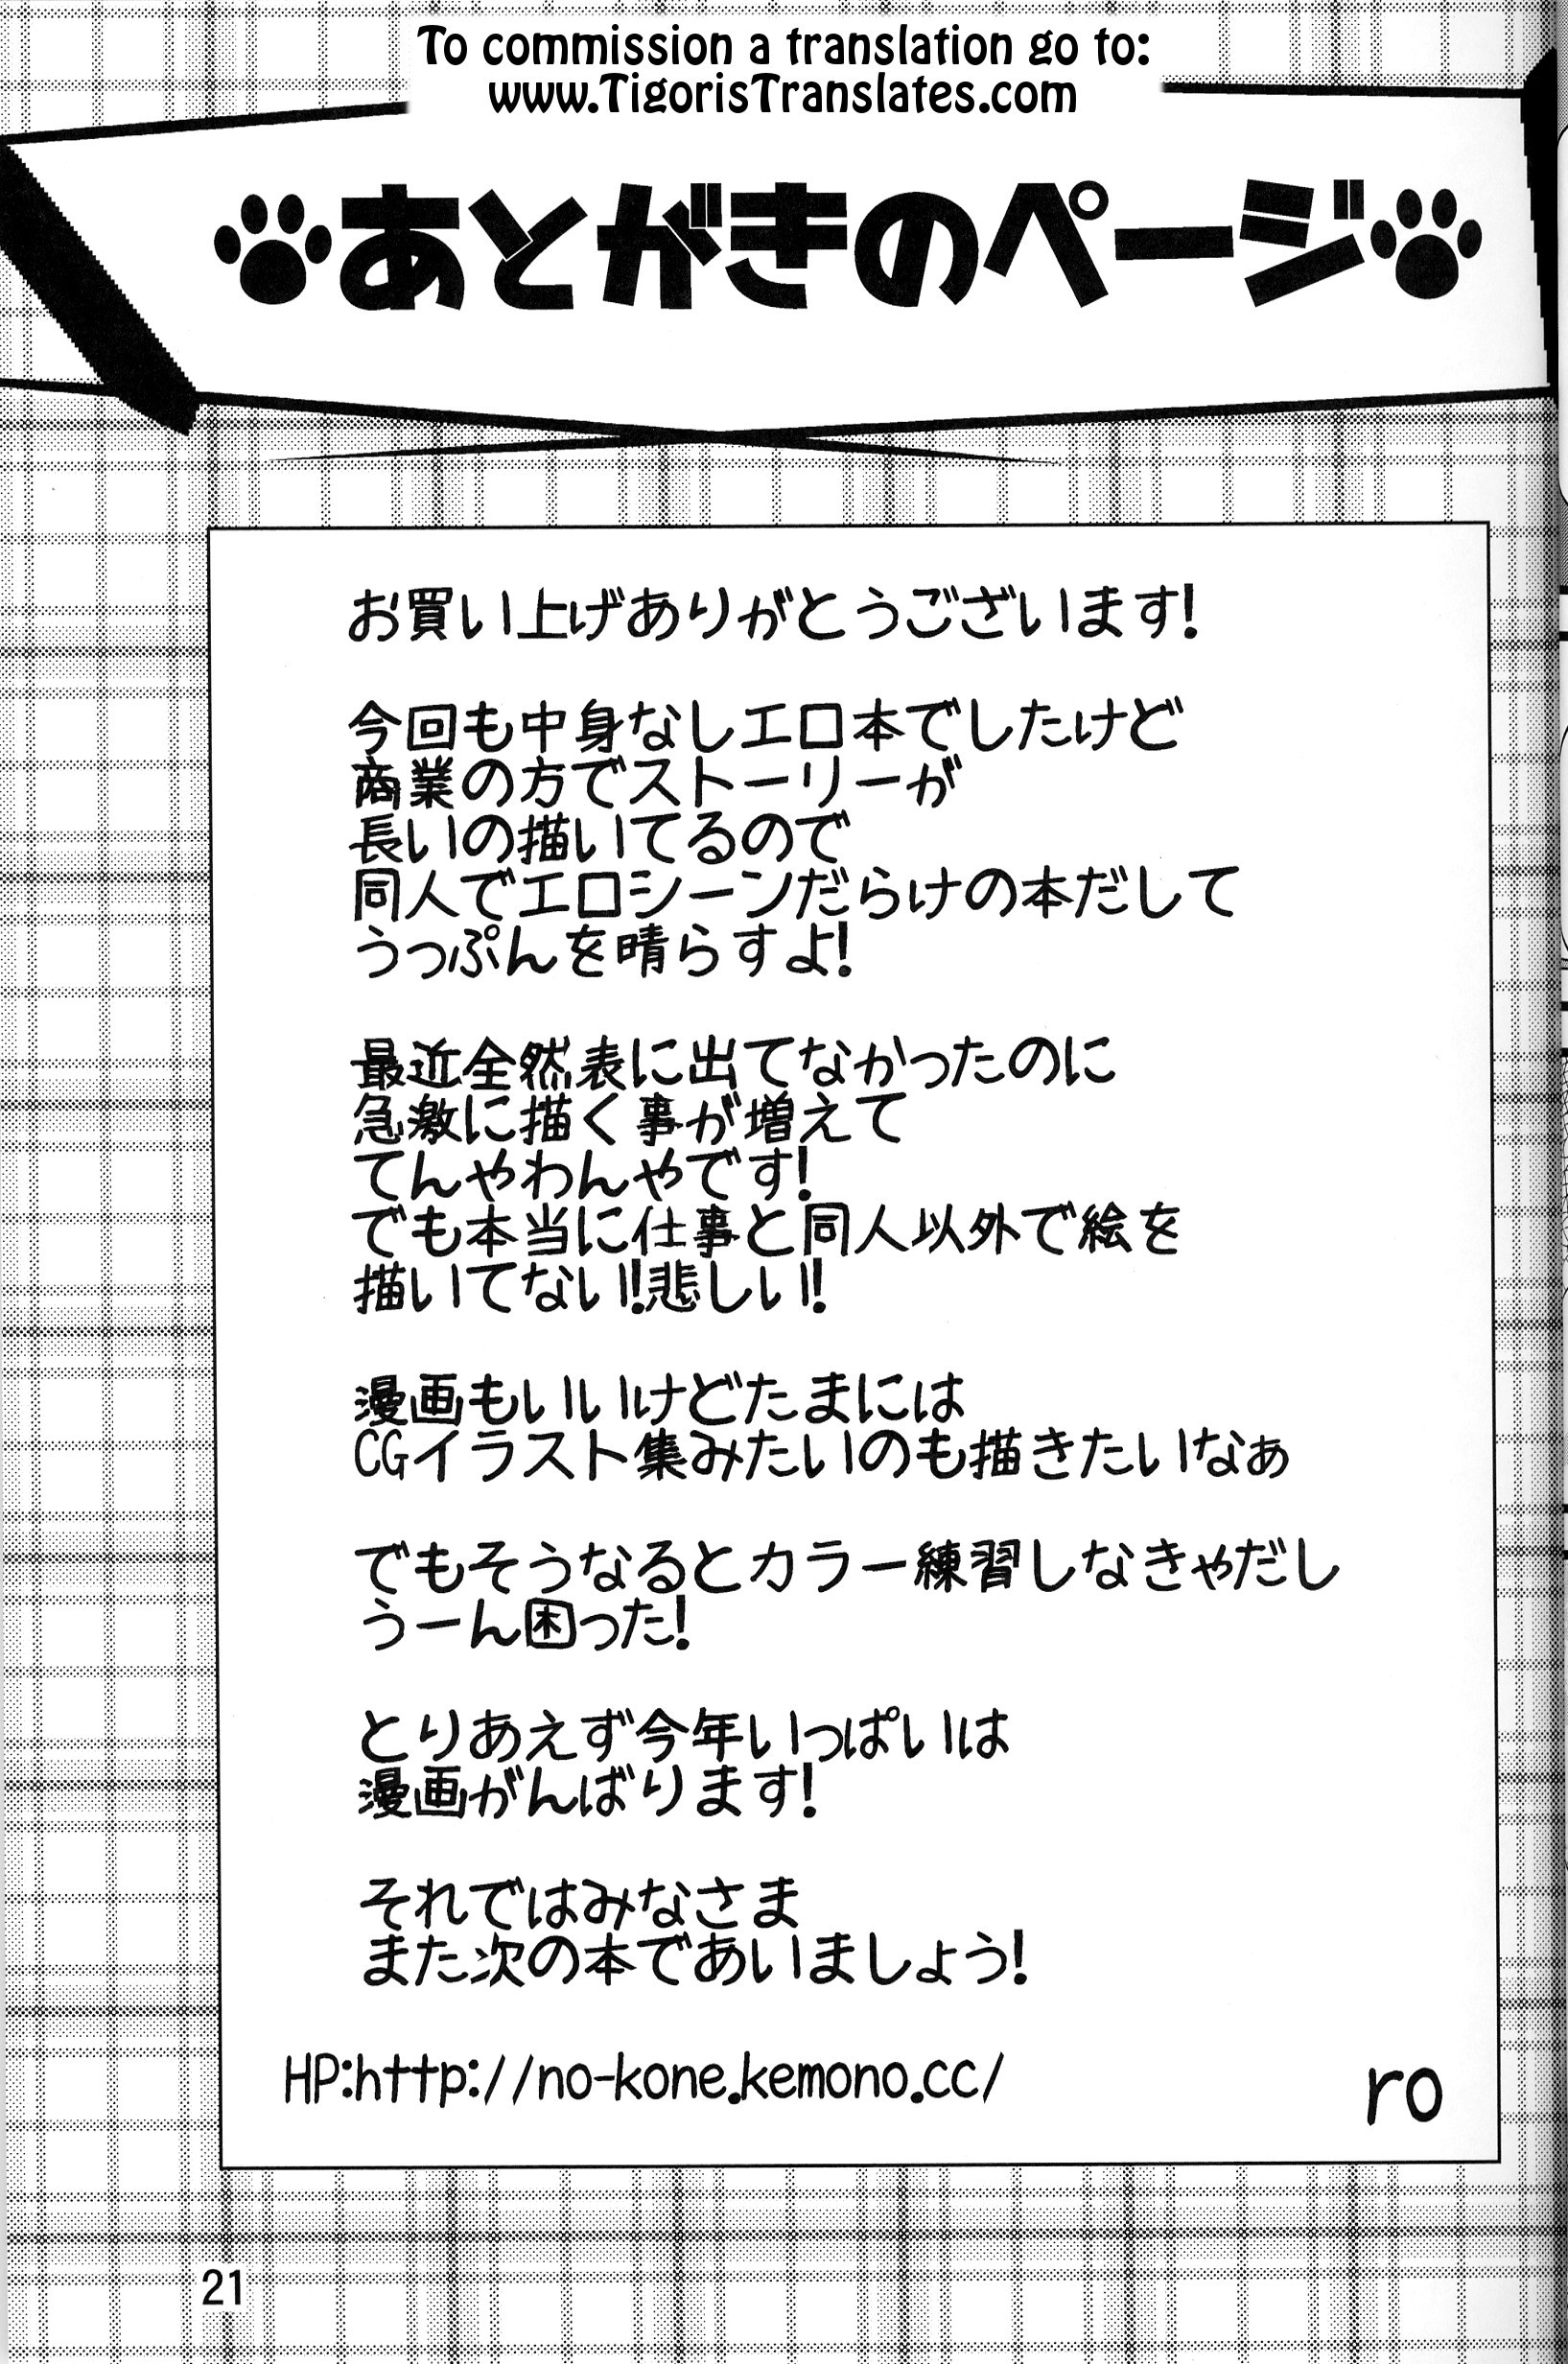 To commission a translation go to:
www.TigorisTranslates.com
あとがきのページ
お買い上げありがとうございます!
今回も中身なしエロ本でしたけど
商業の方でストーリーが
長いの描いてるので
同人でエロシーンだらけの本だして
うっぷんを晴らすよ!
最近全然表に出てなかったのに
急激に描く事が増えて
てんやわんやです!
でも本当に仕事と同人以外で絵を
描いてない!悲しい!
漫画もいいけどたまには
CGイラスト集みたいのも描きたいなぁ
でもそうなるとカラー練習しなきゃだし
うーん困った!
とりあえず今年いっぱいは
漫画がんばります!
それではみなさま
また次の本であいましょう!
HP:http://no-kone.kemono.cc/
ro
21